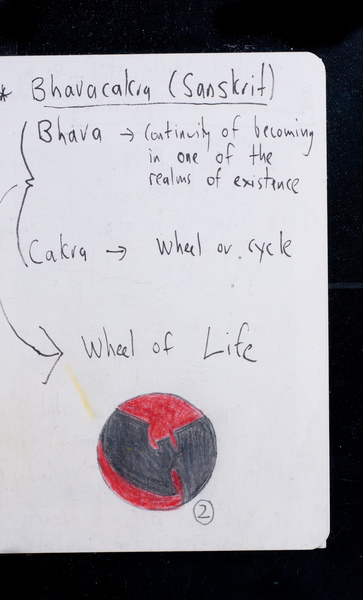 * Bhavacakra (Sanskrit)
Bhava → Continuity of becoming
in one of the
realms of existence
Cakra → Wheel or cycle
Wheel of Life
2